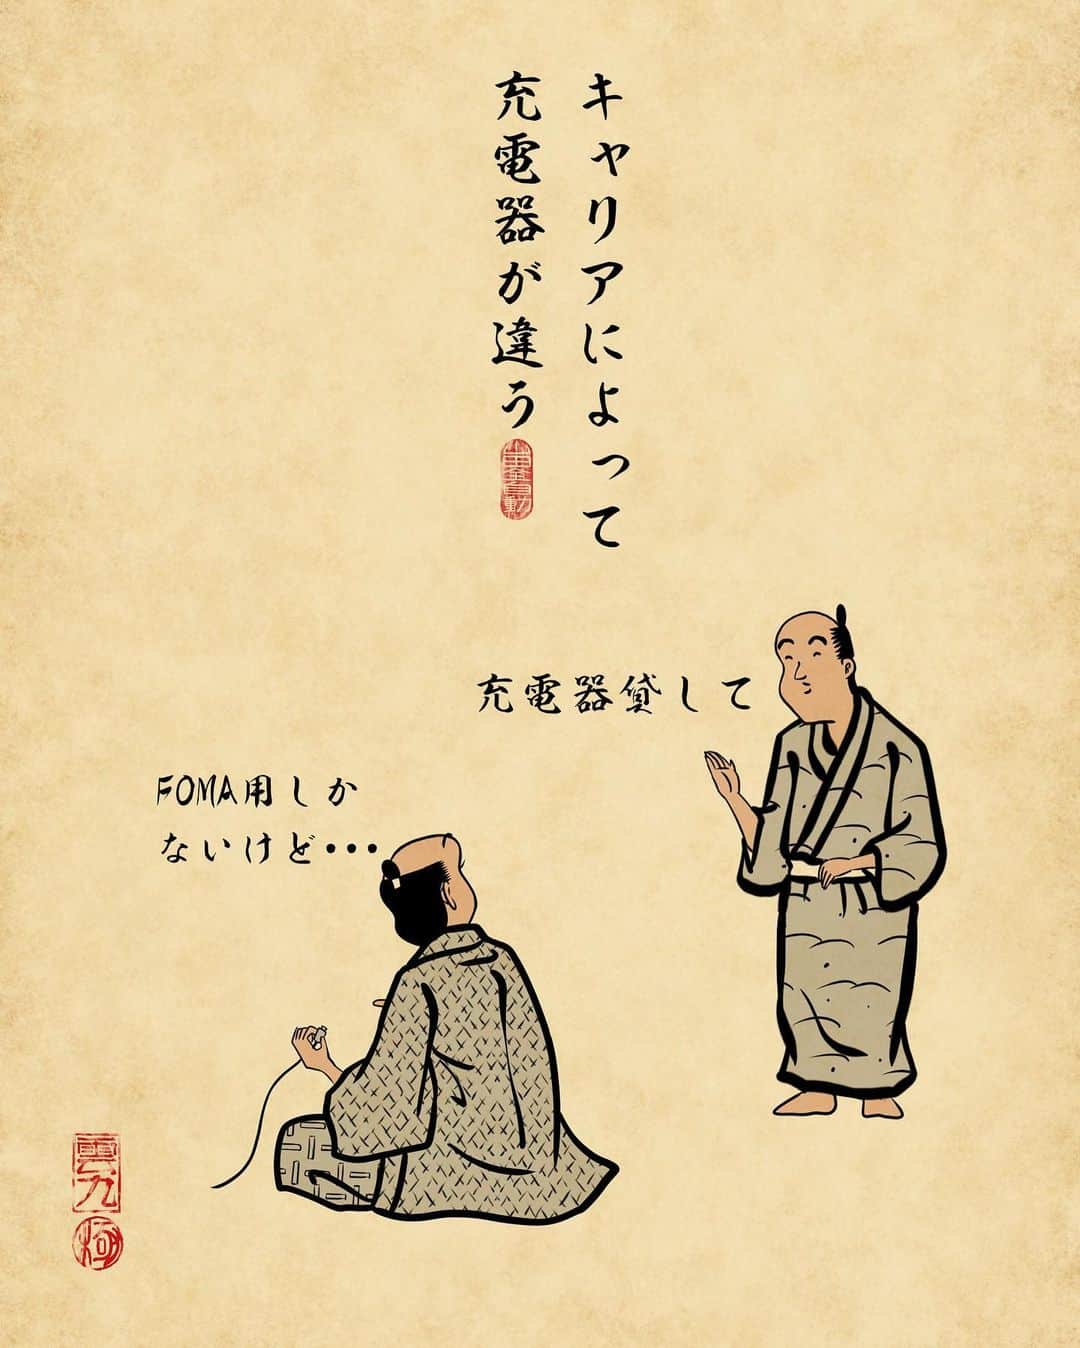 キャリアによって
充電器が違う
充電器貸して
FOMA用しか
ないけど・・・